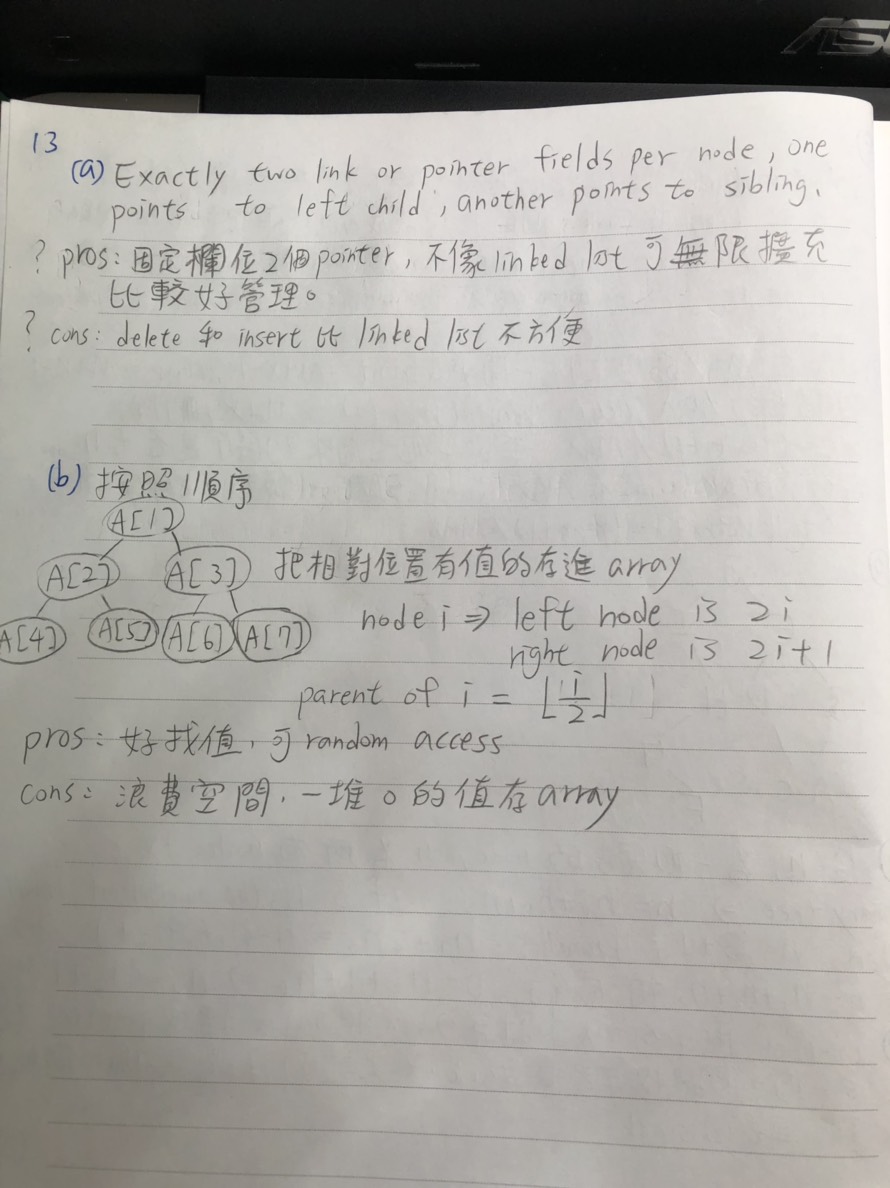 ASU
13
(a) Exactly two link or pointer fields per node, one
points to left child, another points to sibling.
? pros: 固定欄位2個pointer, 不像linked list可無限擴充
比較好管理。
? cons: delete 和 insert 比 linked list 不方便
(b) 按照順序
A[1]
A[2] A[3] 把相對位置有值的存進 array
A[4] A[5] A[6] A[7] node i ⇒ left node is 2i
right node is 2i+1
parent of i = ⌊i/2⌋
pros: 好找值, 可random access
cons: 浪費空間, 一堆0的值存array